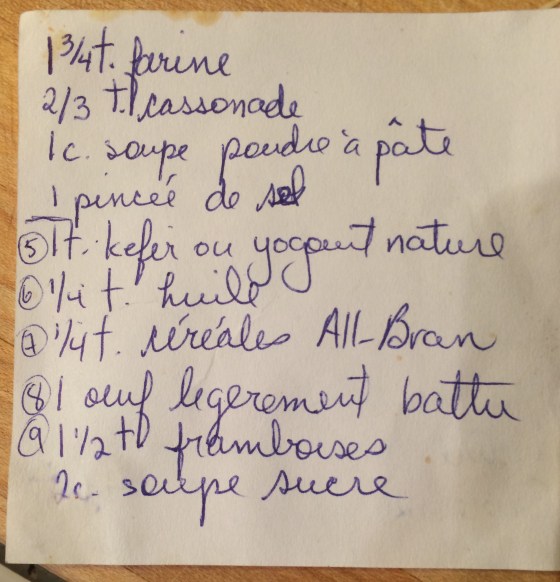 1 3/4 t. farine
2/3 t. cassonade
1 c. soupe poudre à pâte
1 pinceé de sel
5 1 t. kefir ou yogourt nature
6 1/4 t. huile
7 1/4 t. céréales All-Bran
8 1 oeuf legerement battu
9 1 1/2 t framboises
2 c. soupe sucre